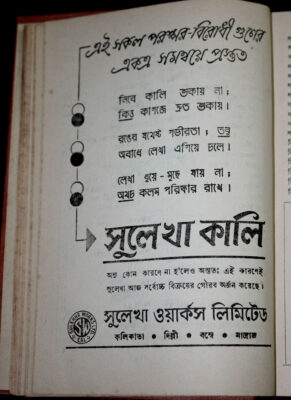 এই সকল পরস্পর-বিরোধী গুণের
একত্র সমন্বয়ে প্রস্তুত
নিবে কালি শুকায় না;
কিন্তু কাগজে দ্রুত শুকায়।
রঙের যথেষ্ট গভীরতা; তবু
অবাধে লেখা এগিয়ে চলে।
লেখা ধুয়ে-মুছে যায় না।
অথচ কলম পরিষ্কার রাখে।
সুলেখা কালি
অন্য কোন কারণে না হ'লেও অন্ততঃ এই কারণেই
সুলেখা আজ সর্বোচ্চ বিক্রয়ের গৌরব অর্জন করেছে।
সুলেখা ওয়ার্কস লিমিটেড
কলিকাতা • দিল্লী • বম্বে • মাদ্রাজ